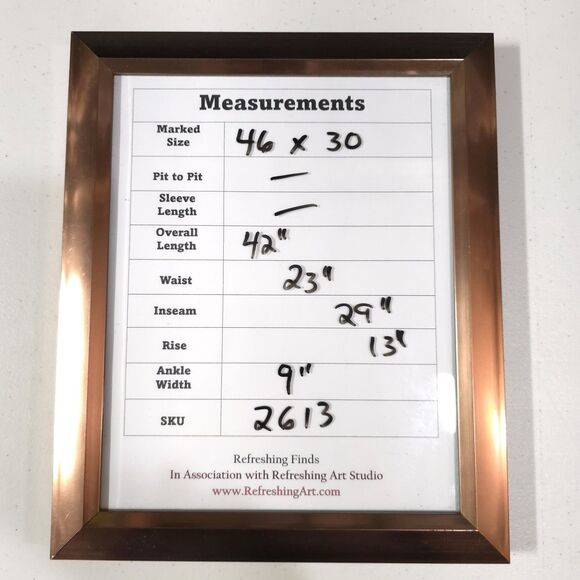 Measurements
Marked Size 46 x 30
Pit to Pit —
Sleeve Length —
Overall Length 42"
Waist 23"
Inseam 29"
Rise 13"
Ankle Width 9"
SKU 2613
Refreshing Finds
In Association with Refreshing Art Studio
www.RefreshingArt.com